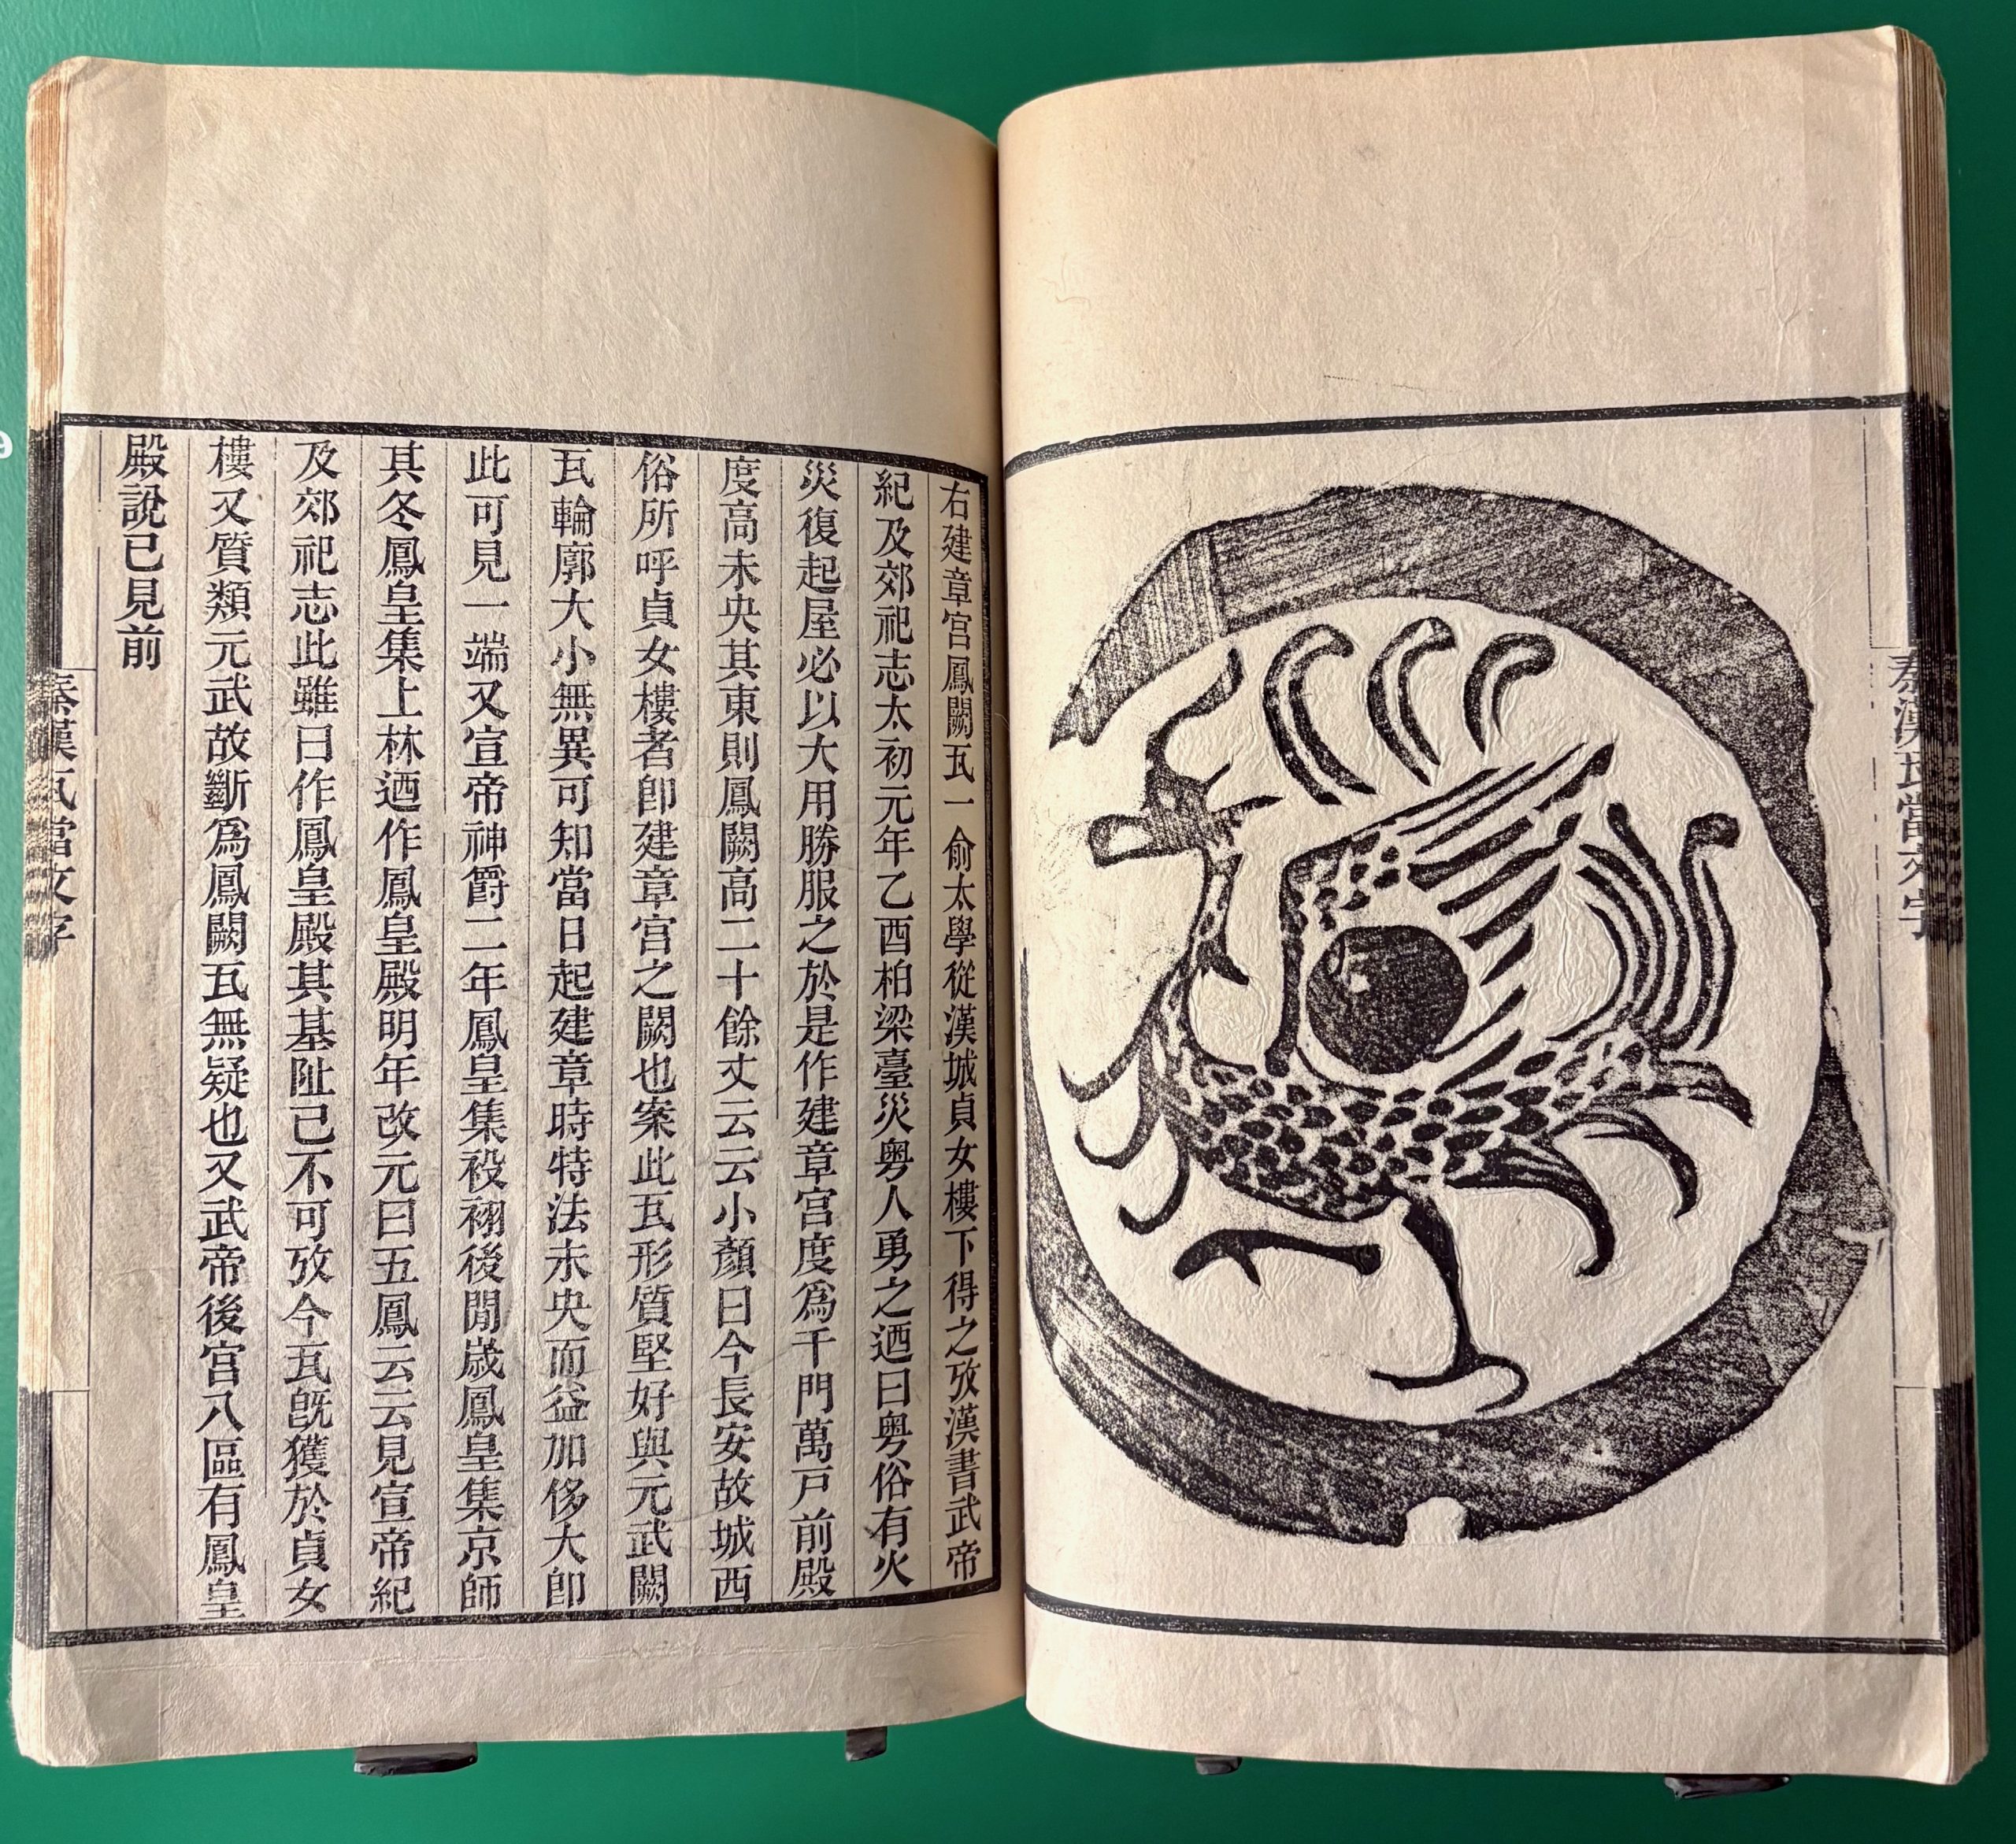 秦漢瓦當文字
右建章宮鳳闕瓦一俞太學從漢城貞女樓下得之攷漢書武帝
紀及郊祀志太初元年乙酉柏梁臺災粵人勇之迺曰粵俗有火
災復起屋必以大用勝服之於是作建章宮度爲千門萬戸前殿
度高未央其東則鳳闕高二十餘丈云云小顏曰今長安故城西
俗所呼貞女樓者卽建章宮之闕也案此瓦形質堅好與元武闕
瓦輪廓大小無異可知當日起建章時特法未央而益加侈大卽
此可見一端又宣帝神爵二年鳳皇集祋祤後閒歲鳳皇集京師
其冬鳳皇集上林迺作鳳皇殿明年改元曰五鳳云云見宣帝紀
及郊祀志此雖曰作鳳皇殿其基阯已不可攷今瓦旣獲於貞女
樓又質類元武故斷爲鳳闕瓦無疑也又武帝後宮八區有鳳皇
殿說已見前
秦漢瓦當文字
9